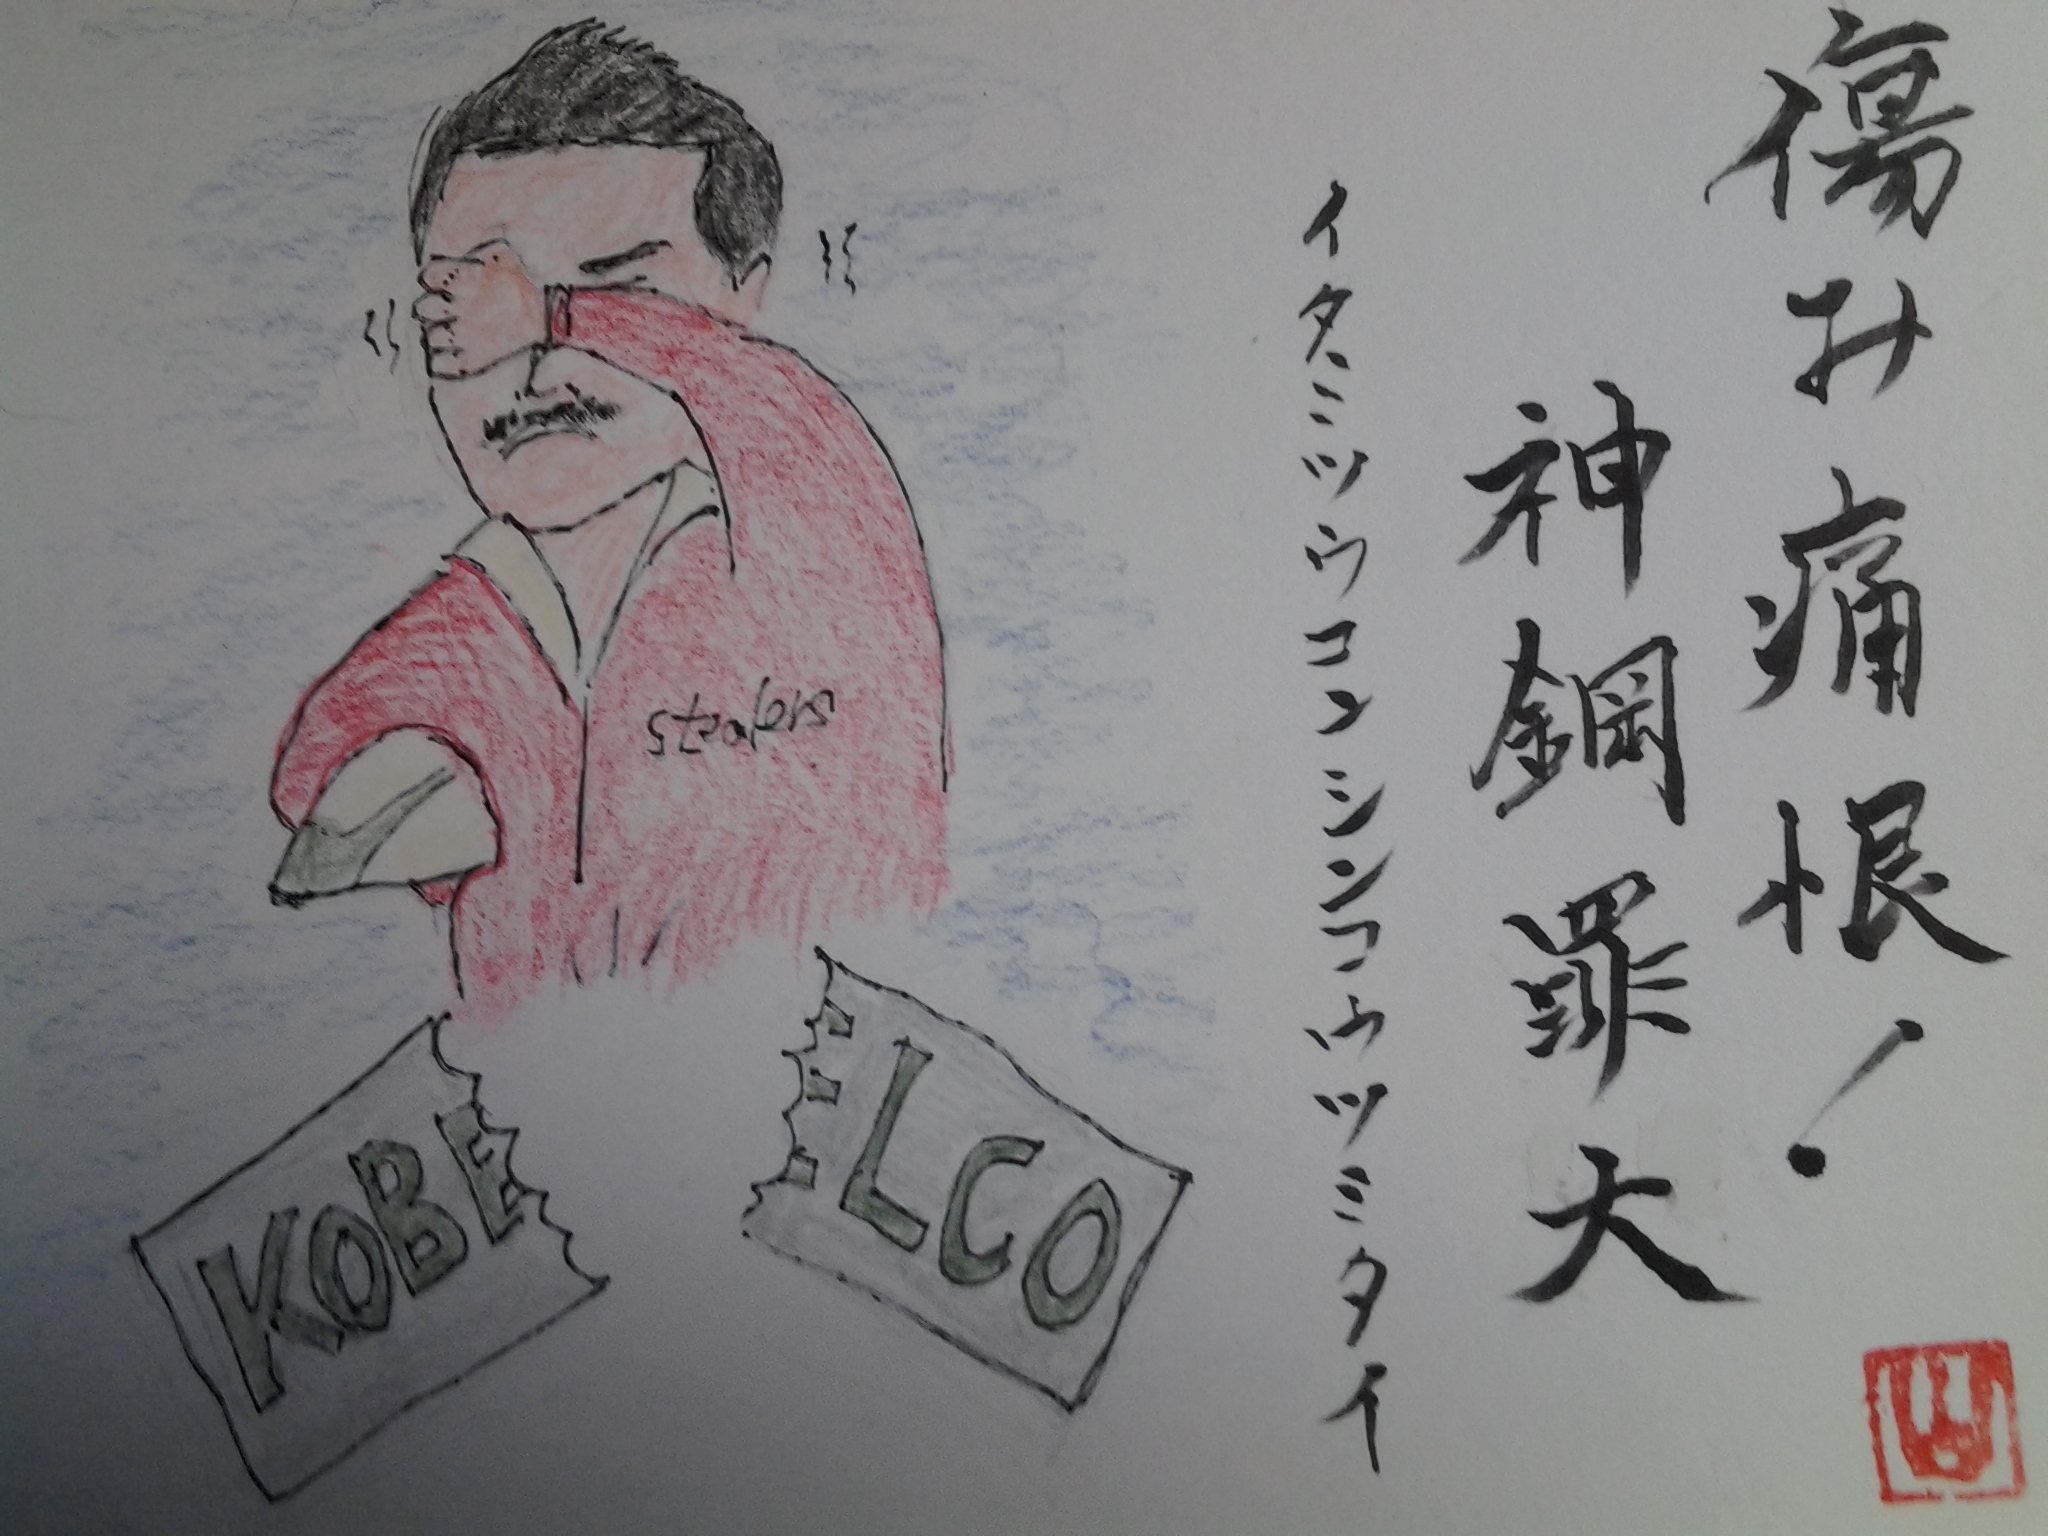 傷み痛恨！
神鋼罪大
イタミツウコンシンコウツミタイ
KOBE
LCO